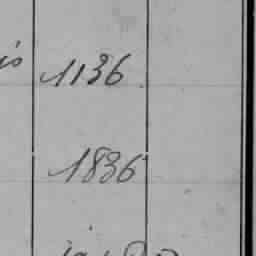 is 1136
1836